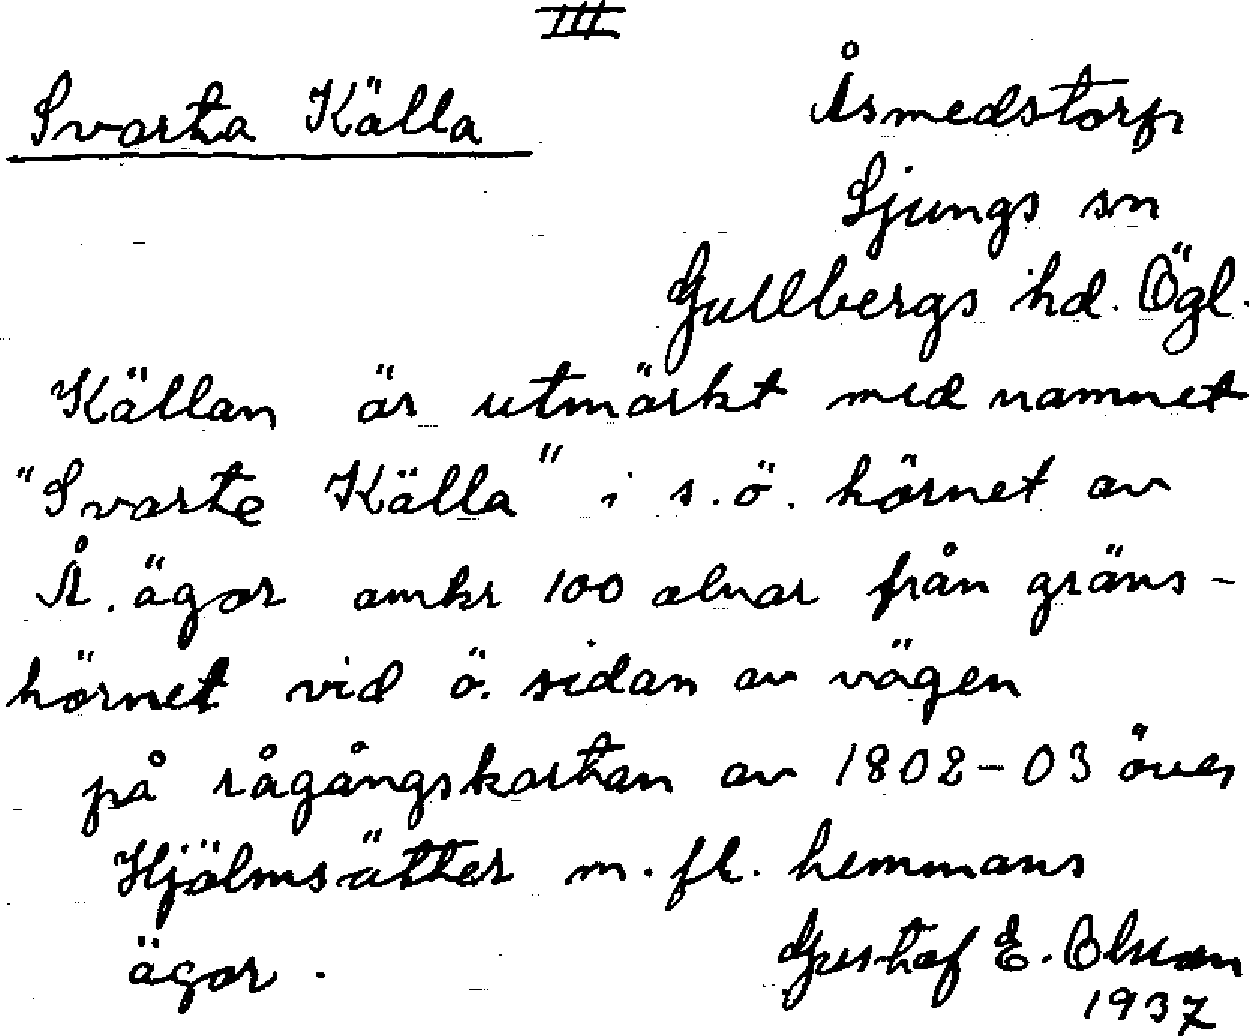 III
Svarta Källa
Åsmedstorp
Ljungs sn
Gullbergs hd. Ögl.
Källan är utmärkt med namnet
"Svarte Källa" i s.ö. hörnet av
Å. ägor omkr 100 alnar från gräns-
hörnet vid ö. sidan av vägen
på rågångskartan av 1802-03 över
Hjälmsätter m. fl. hemmans
ägor.
Gustaf E. Olsson
1937